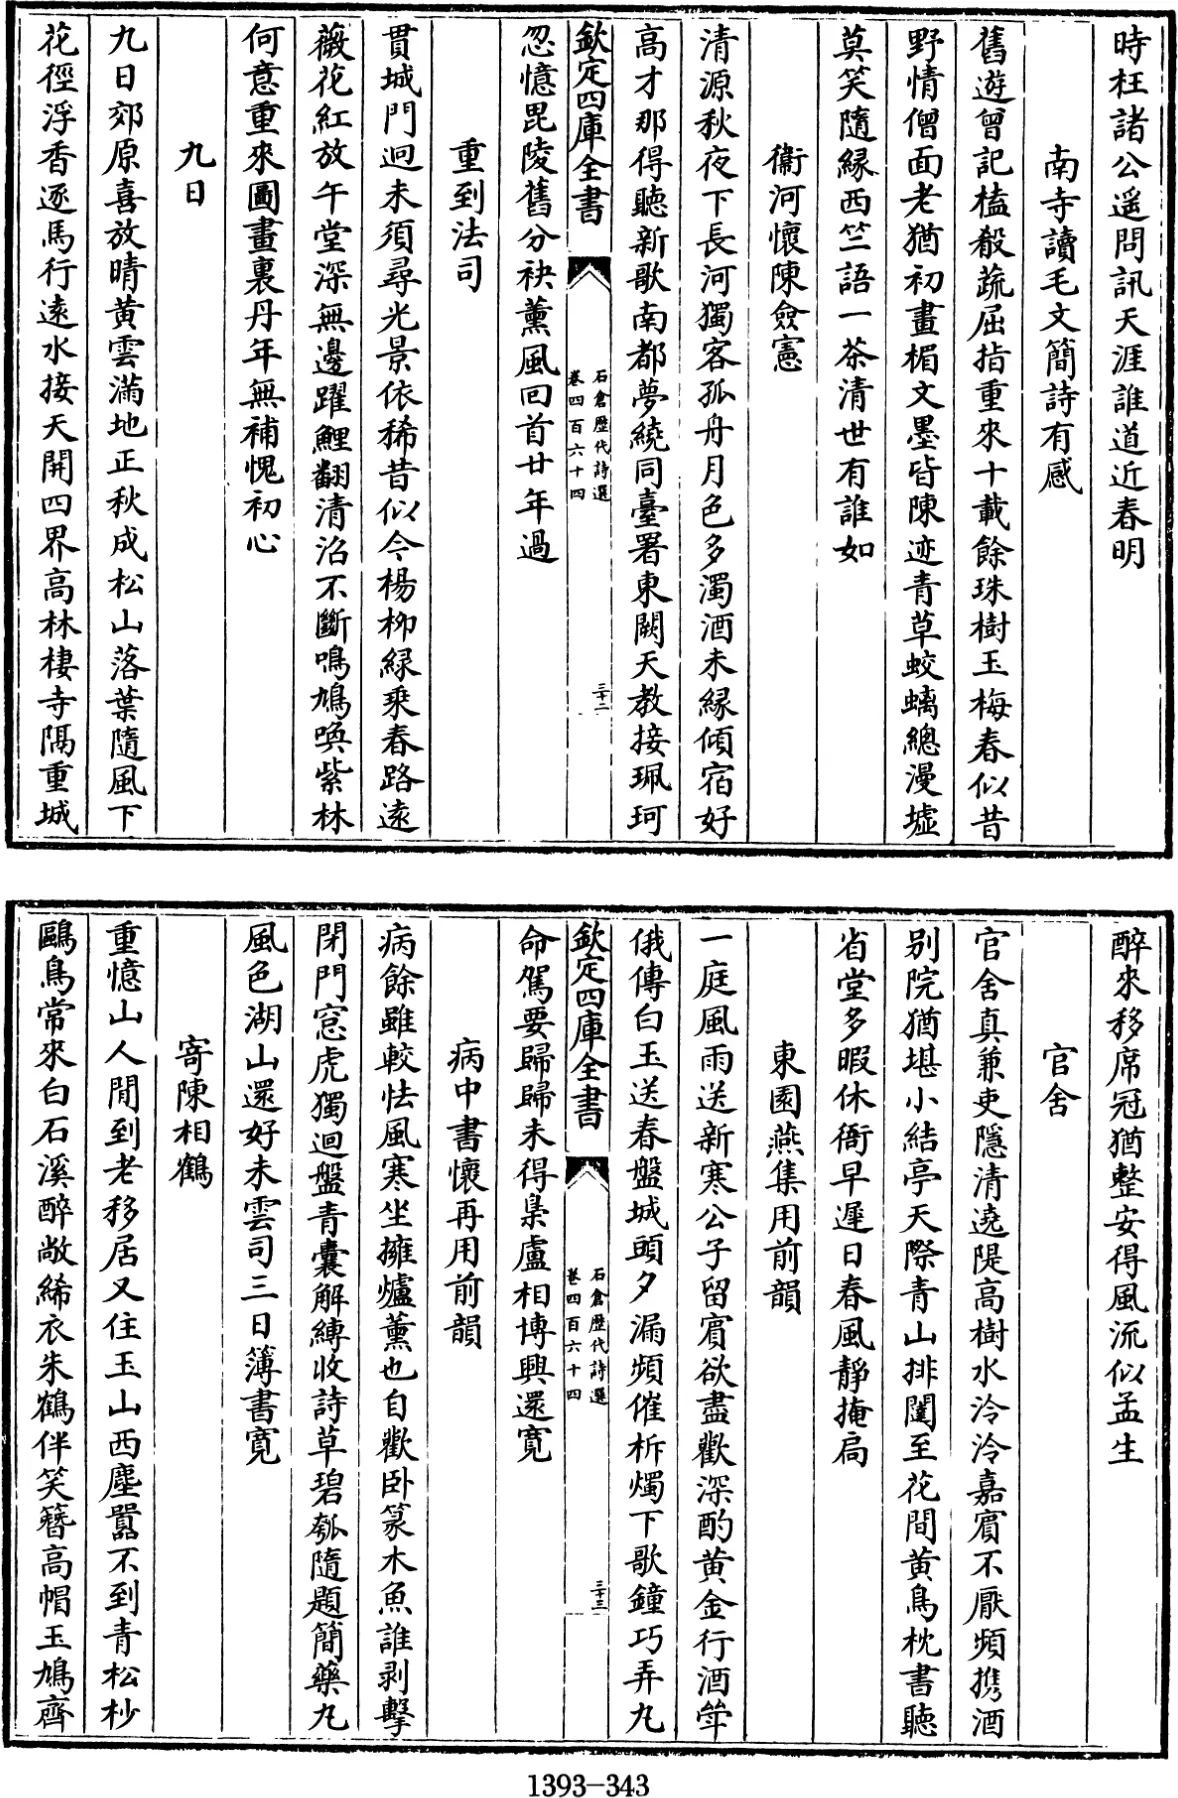 時枉諸公遥問訊天涯誰道近春明
南寺讀毛文簡詩有感
舊遊曾記榼殽蔬屈指重來十載餘珠樹玉梅春似昔
野情僧面老猶初畫楣文墨皆陳迹青草蛟螭總漫墟
莫笑隨縁西竺語一茶清世有誰如
衞河懷陳僉憲
清源秋夜下長河獨客孤舟月色多濁酒未縁傾宿好
高才那得聽新歌南都夢繞同臺署東闕天教接珮珂
欽定四庫全書
石倉歴代詩選
卷四百六十四
三十二
忽憶毘陵舊分袂薰風回首廿年過
重到法司
貫城門迥未須尋光景依稀昔似今楊栁緑乗春路逺
薇花紅放午堂深無邊躍鯉翻清沼不斷鳴鳩喚紫林
何意重來圖畫裏丹年無補愧初心
九日
九日郊原喜放晴黄雲滿地正秋成松山落葉隨風下
花徑浮香逐馬行逺水接天開四界高林棲寺隔重城
醉來移席冠猶整安得風流似孟生
官舍
官舍真兼吏隱清遶隄高樹水泠泠嘉賓不厭頻携酒
别院猶堪小結亭天際青山排闥至花間黄鳥枕書聽
省堂多暇休衙早遲日春風靜掩扃
東園燕集用前韻
一庭風雨送新寒公子留賓欲盡歡深酌黄金行酒斝
俄傳白玉送春盤城頭夕漏頻催柝燭下歌鐘巧弄丸
欽定四庫全書
石倉歴代詩選
卷四百六十四
三十三
命駕要歸歸未得梟盧相博興還寛
病中書懷再用前韻
病餘雖較怯風寒坐擁爐薰也自歡卧篆木魚誰剥擊
閉門窓虎獨迴盤青囊解縛收詩草碧瓠隨題簡藥丸
風色湖山還好未雲司三日簿書寛
寄陳相鶴
重憶山人閒到老移居又住玉山西塵囂不到青松杪
鷗鳥常來白石溪醉敞絺衣朱鶴伴笑簪高帽玉鳩齊
1393-343